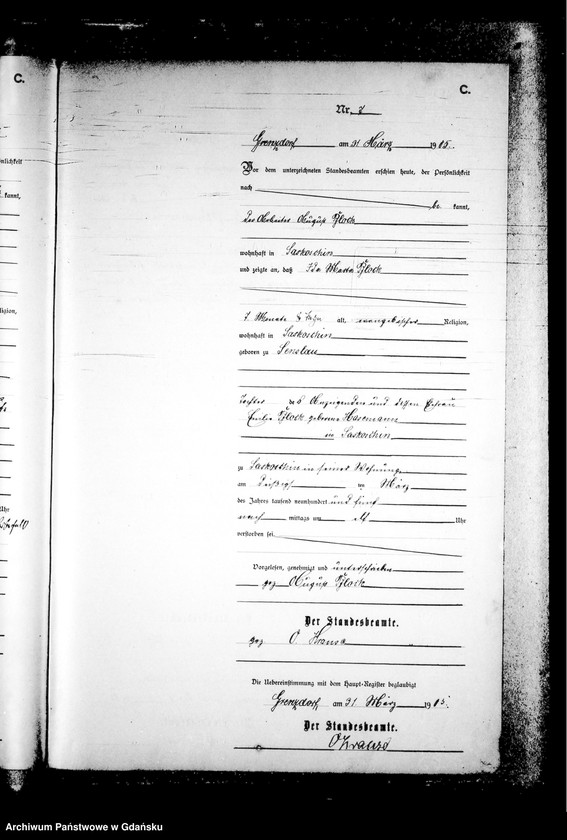 C.
C.
Nr. 7
Grenzdorf am 31 März 1905.
Vor dem unterzeichneten Standesbeamten erschien heute, der Persönlichkeit
nach be kannt,
der Arbeiter August
wohnhaft in Saskoschin
und zeigte an, daß Ida Martha
7 Monate 8 Tage alt, evangelischer Religion,
wohnhaft in Saskoschin
geboren zu Senslau
Tochter des Anzeigenden und dessen Ehefrau
Emilie geborene
in Saskoschin
zu Saskoschin in seiner Wohnung
am März
des Jahres tausend neunhundert und fünf
nach mittags um Uhr
verstorben sei.
Vorgelesen, genehmigt und unterschrieben
gez August
Der Standesbeamte.
gez O.
Die Uebereinstimmung mit dem Haupt-Register beglaubigt
Grenzdorf am 31 März 1905.
Der Standesbeamte.
nlichkeit
kannt,
ligion,
Uhr
Archiwum Państwowe w Gdańsku